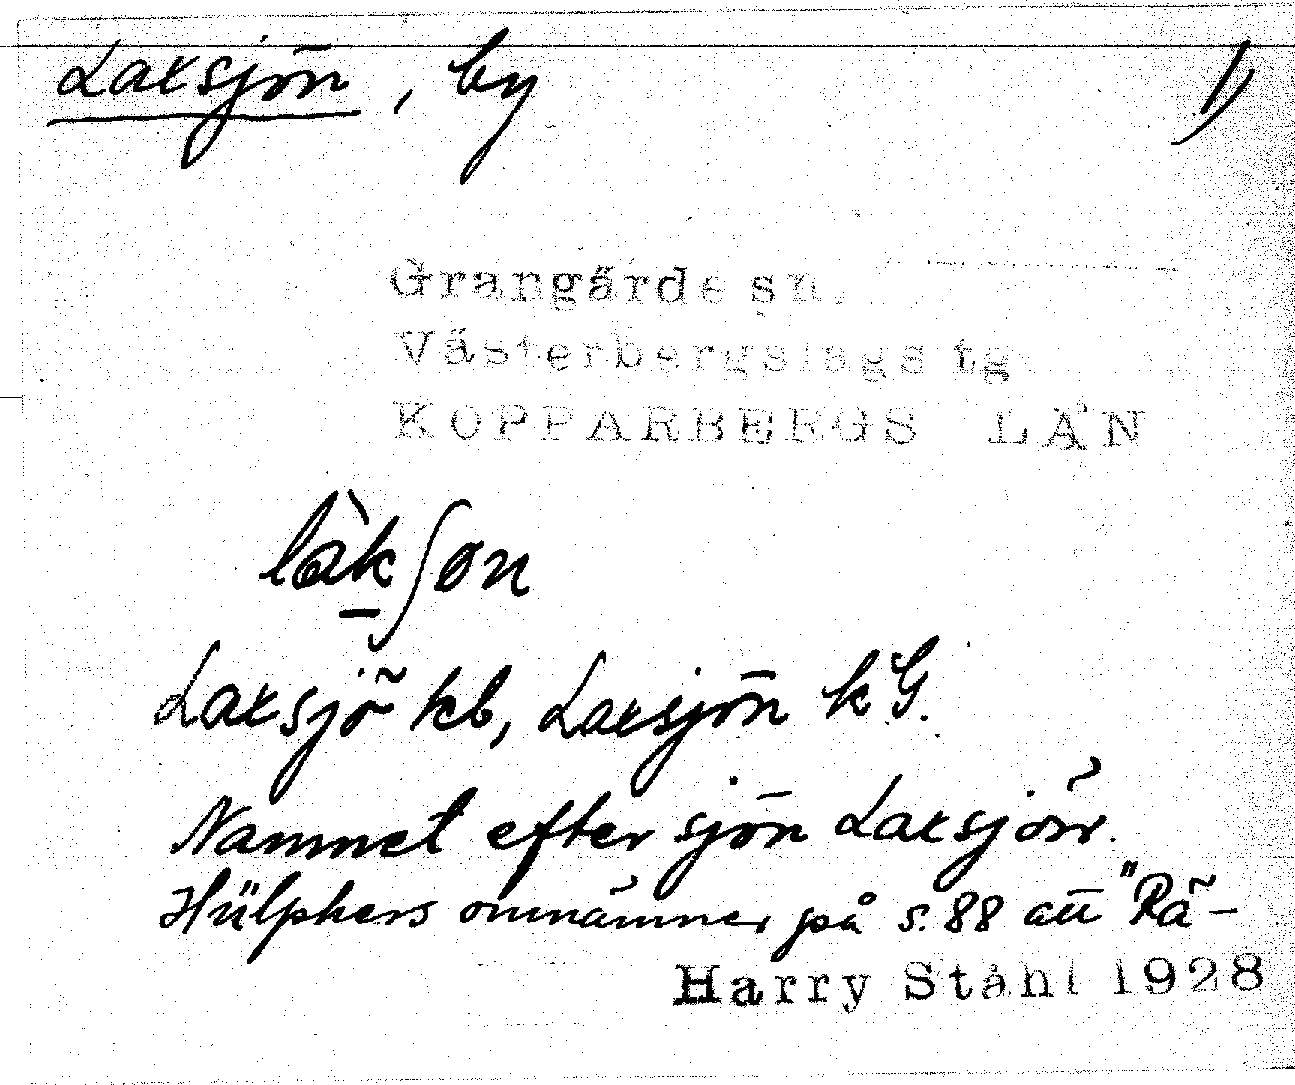 Laxsjön, by 1)
Grangärde sn.
Västerbergslags tg
KOPPARBERGS LÄN
làkʃon
Laxsjö kb, Laxsjön k G.
Namnet efter sjön Laxsjön.
Hülphers omnämner på s. 88 att "Rä-
Harry Ståhl 1928